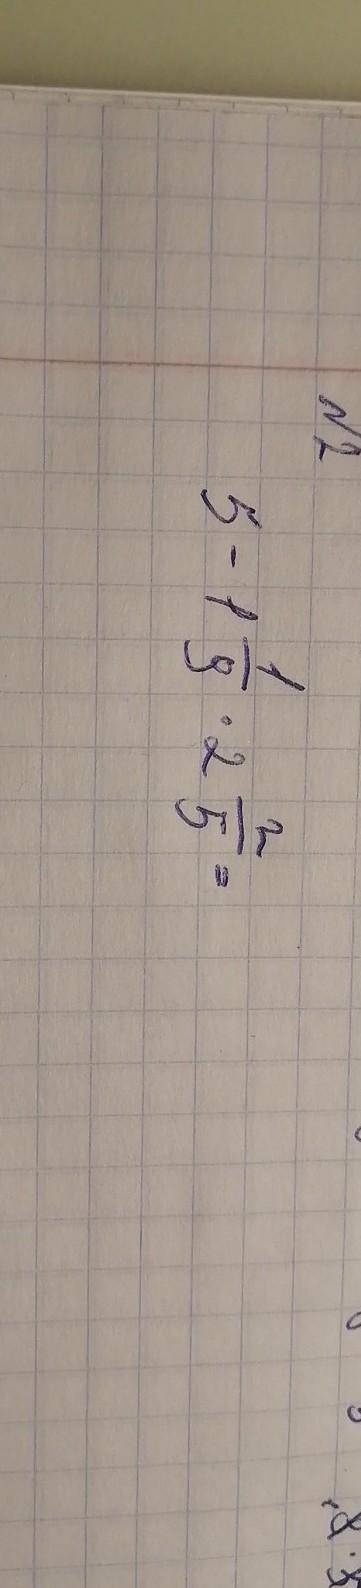 №2
5 - 1 1/9 · 2 2/5 =